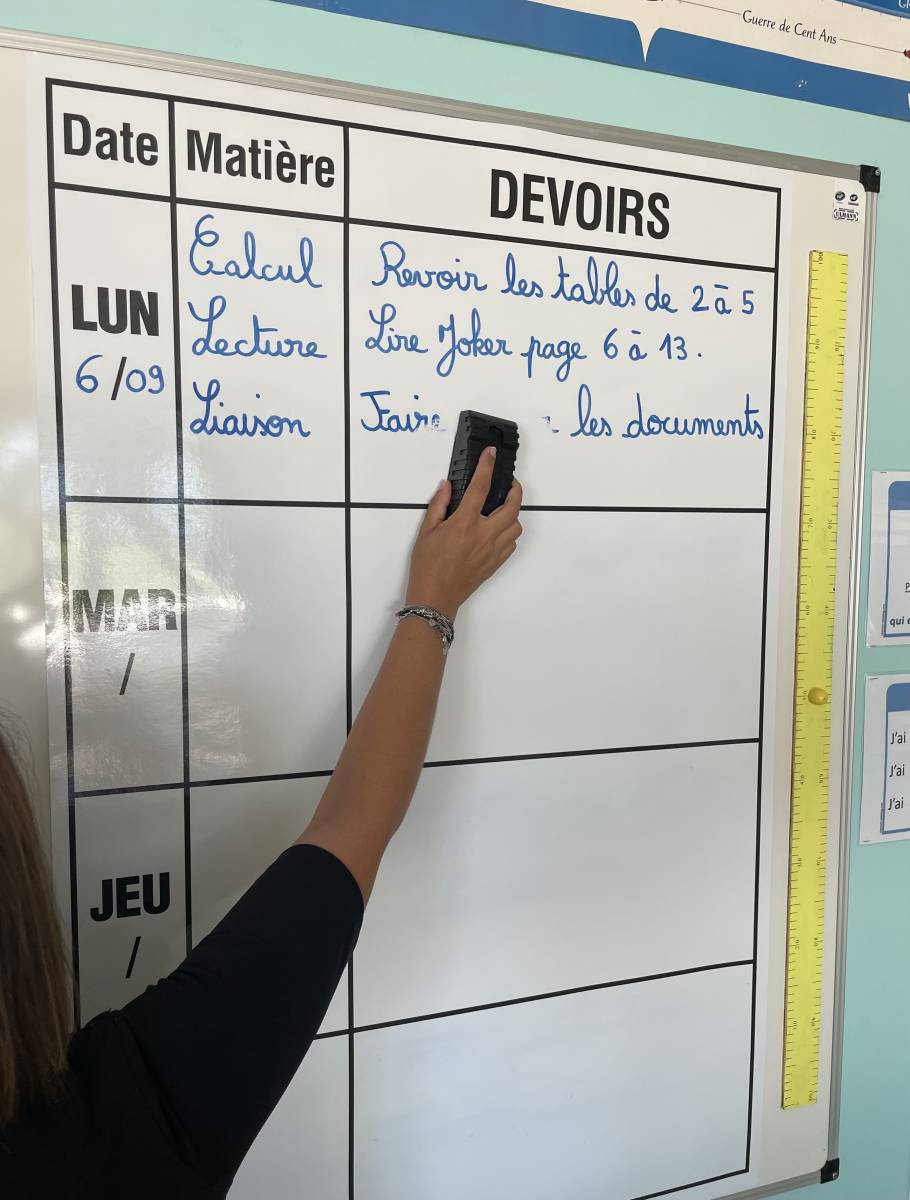 Guerre de Cent Ans
Date Matière DEVOIRS
LUN
6/09
Calcul Revoir les tables de 2 à 5
Lecture Lire Joker page 6 à 13.
Liaison Faire les documents
MAR
/
JEU
/
ULMANN
qui
J'ai
J'ai
J'ai